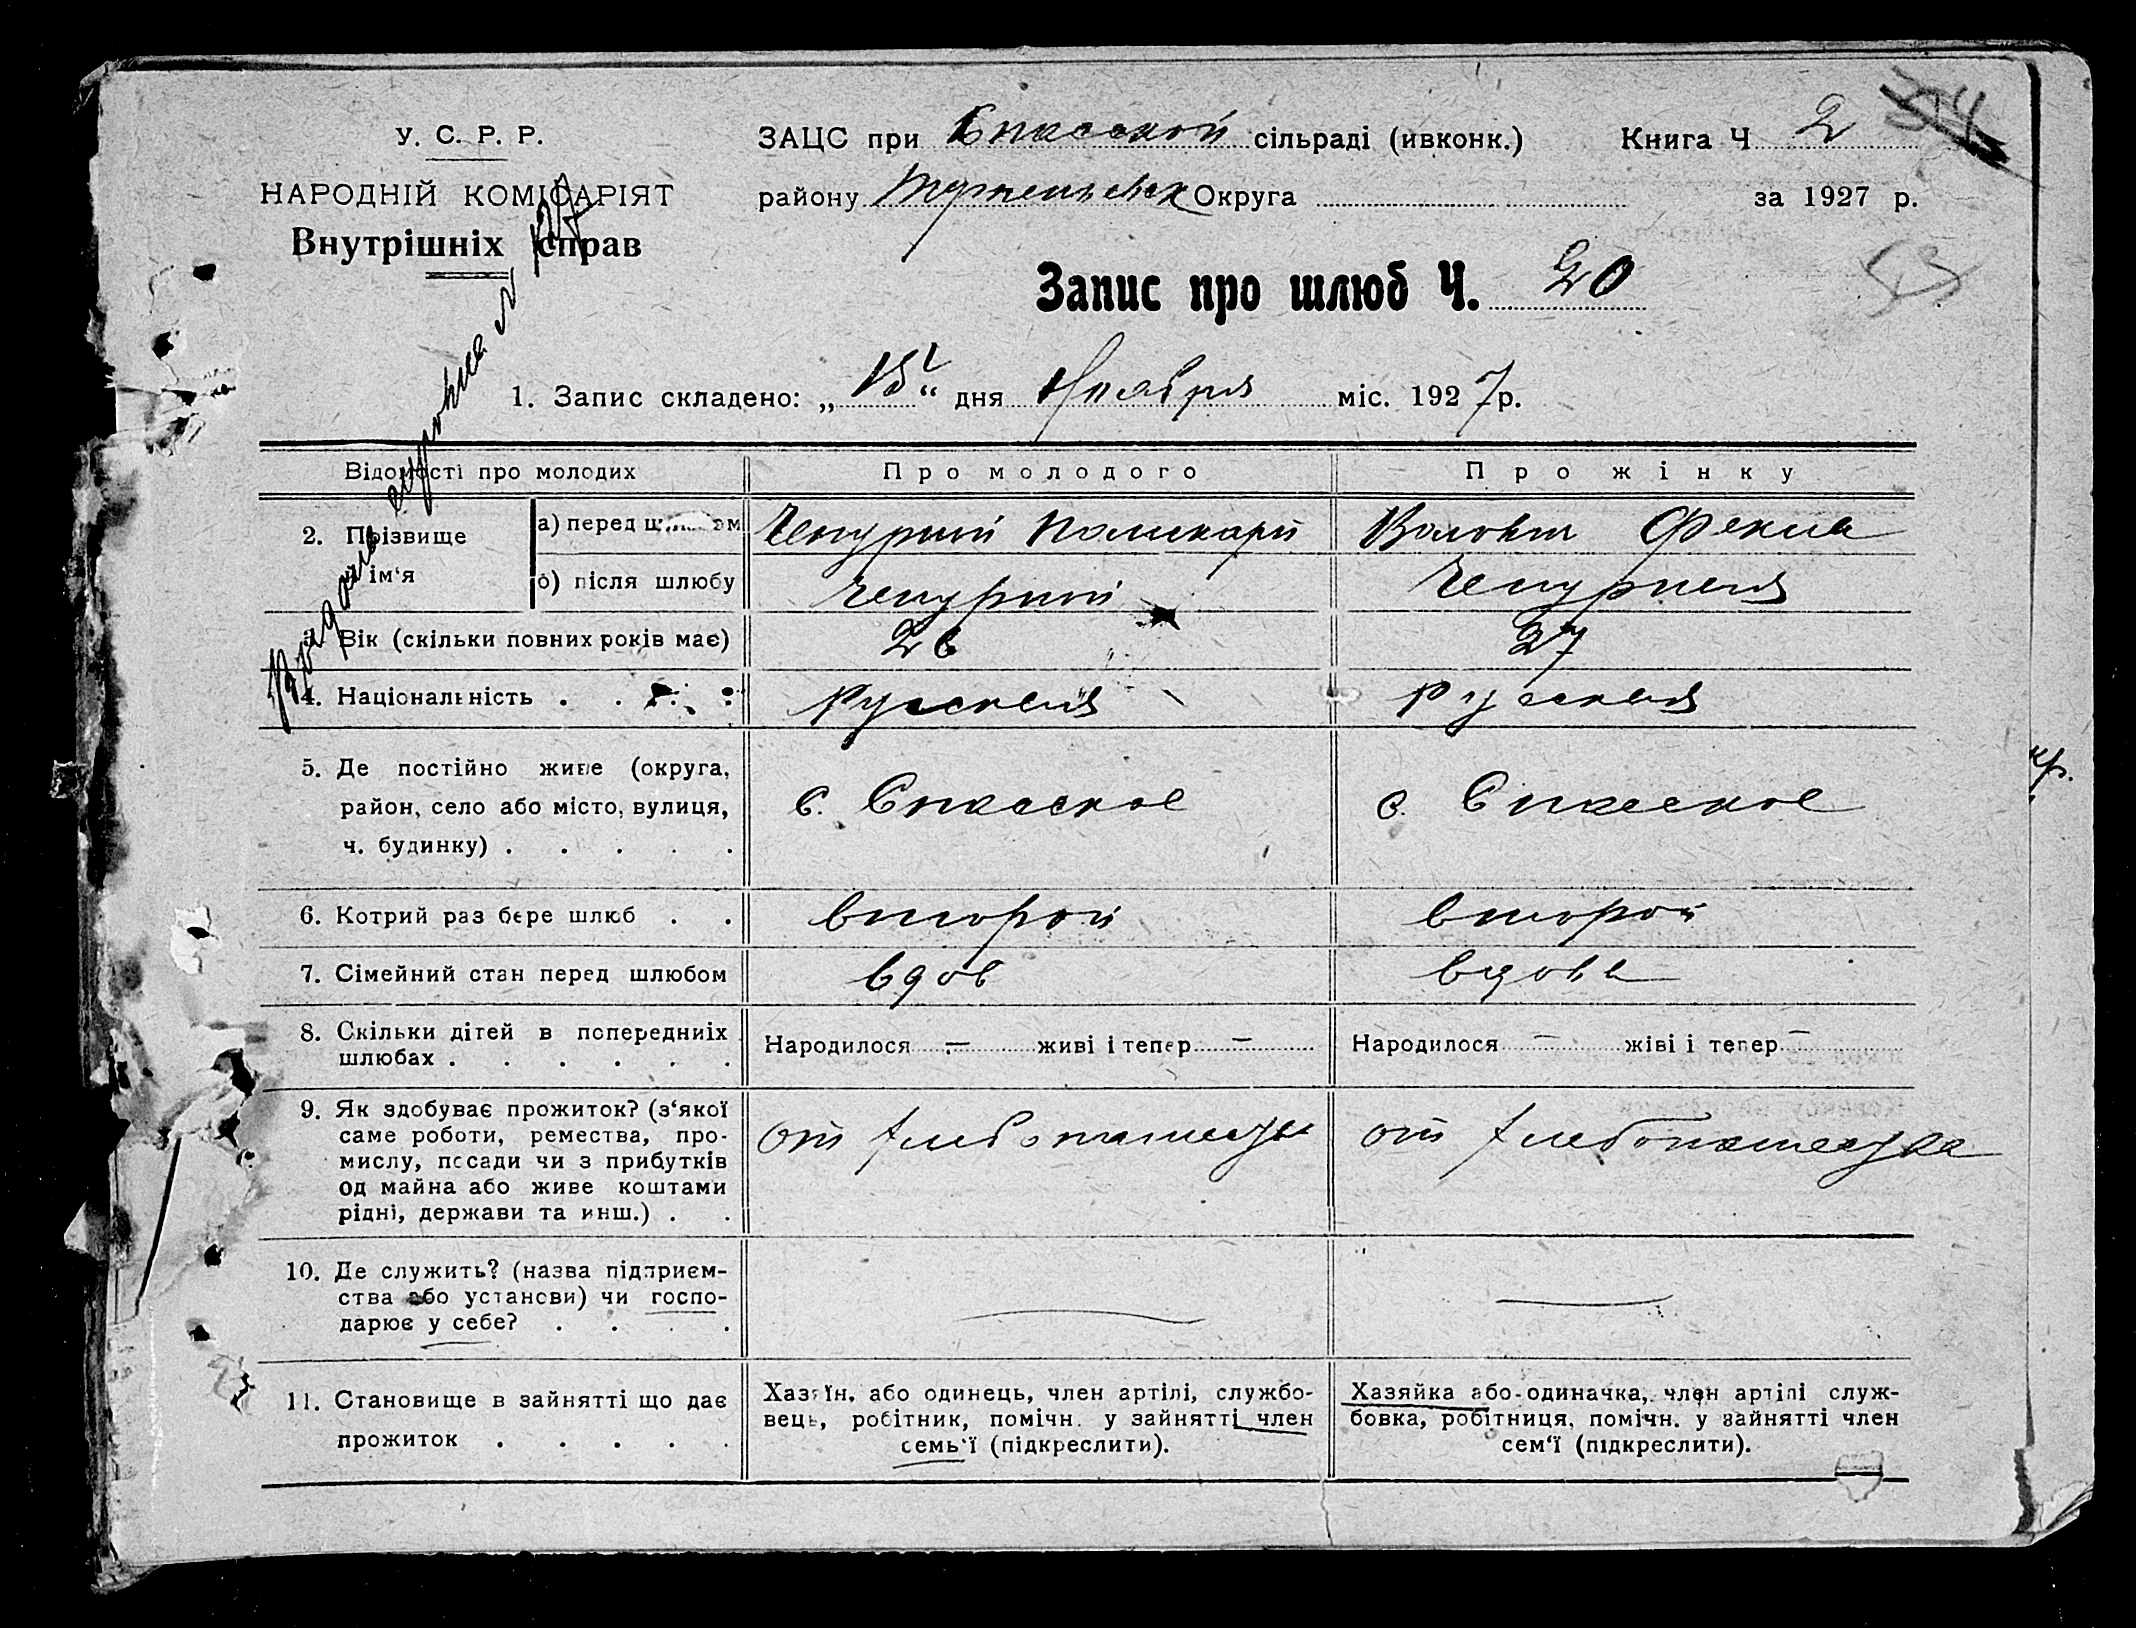 У. С. Р. Р.
НАРОДНІЙ КОМІСАРІЯТ
Внутрішніх справ
ЗАЦС при Спасской сільраді (ивконк.) Книга Ч 2
району Округа за 1927 р.
53
Запис про шлюб Ч. 20
1. Запис складено: „15“ дня Ноября міс. 1927 р.
Відомості про молодих Про молодого Про жінку
2. Прізвище й ім‘я а) перед шлюбом Чепурний Поликарп Фекла
б) після шлюбу Чепурний Чепурная
3. Вік (скільки повних років має) 26 27
4. Національність . . . . Руская Руская
5. Де постійно живе (округа, с. Спасское с. Спасское
район, село або місто, вулиця,
ч. будинку) . . . . .
6. Котрий раз бере шлюб . . второй второй
7. Сімейний стан перед шлюбом вдов вдова
8. Скільки дітей в попередниіх Народилося — живі і тепер — Народилося — жіві і тепер —
шлюбах . . . . . .
9. Як здобуває прожиток? (з‘якої
саме роботи, ремества, про- от хлебопашества от хлебопашества
мислу, посади чи з прибутків
од майна або живе коштами
рідні, держави та инш.) . .
10. Де служить? (назва підприєм-
ства або установи) чи госпо- — —
дарює у себе? . . . .
11. Становище в зайнятті що дає Хазяїн, або одинець, член артілі, службо- Хазяйка або-одиначка, член артілі служ-
прожиток . . . . . вець, робітник, помічн. у зайнятті член бовка, робітниця, помічн. у зайнятті член
семь‘ї (підкреслити). сем‘ї (підкреслити).